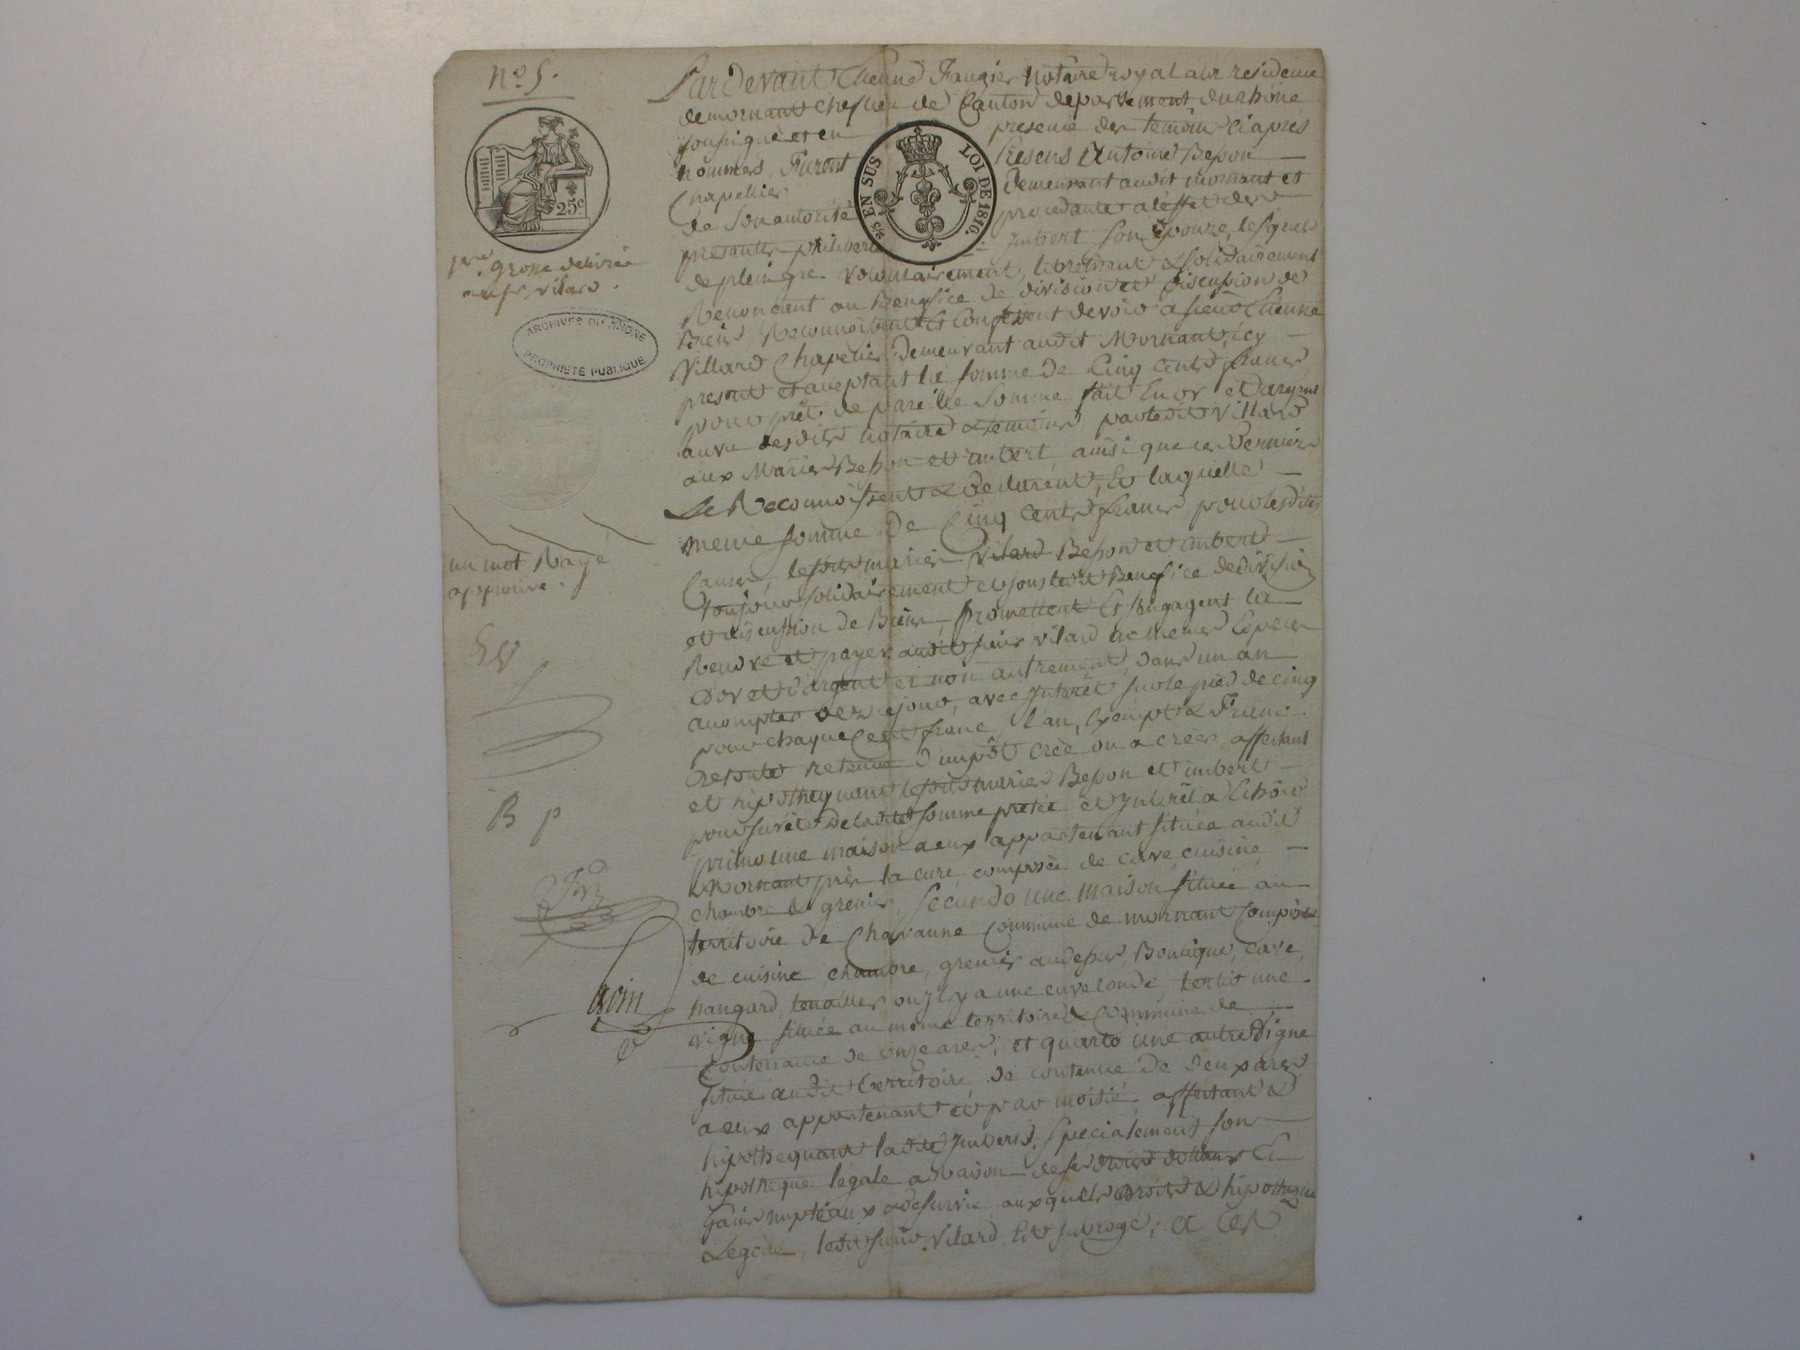 n° 5.
Pardevant Etienne Faugier Notaire royal a la residence
de mornant chef lieu de Canton departement du rhône
soussigné et en presence des temoins ci apres
nommés, Furent Presens Antoine Besson
Chapellier Demeurant audit mornant et
de Son autorité procedante a l'effet des
presentes philiberte Imbert son Epouze, lesquels
de plein gré volontairement, librement & solidairement
Renoncant au Benefice de division et discussion de
Biens, Reconnoissent et Confessent devoir a sieur Etienne
Villard Chapelier demeurant audit Mornant, icy
present et acceptant la somme de Cinq Cents francs,
pour prêt de pareille Somme fait En or et d'argent
au vu desdits notaire & temoins, par ledit Villard
aux Mariés Besson et imbert ainsi que ces derniers
Le Reconnoissent & Declarent, Et laquelle
meme somme de Cinq Cents francs pour lesdites
Causes, lesdits mariés vilard Besson et imbert
toujours solidairement et sous ledit Benefice de division
et discussion de Biens, promettent Et s'engagent la
Rendre et payer audit sieur vilard en memes Especes
d'or et d'argent et non autrement, dans un an
a compter de ce jour, avec Interêt sur le pied de cinq
pour chaque Cent franc, l'an, Exempt & Franc
de toute retenue d'impôt créé ou a créer, affectant
et hipothequant lesdits mariés Besson et imbert
pour sureté de ladite somme pretée et Interêt a Echoir
primo une maison a eux appartenant située audit
Mornant près la cure composée de cave, cuisine,
chambre & grenier, Secundo une maison située au
territoire de Chavanne Commune de mornant Composée
de cuisine, chambre, grenier au dessus, Boutique, cave,
hangard, tenailler ou Il y a une cuve ronde, tertio une
vigne située au meme territoire & Commune de
Contenance de onze ares, et quarto une autre Vigne
située audit territoire de contenue de deux ares
a eux appartenant et par moitié affectant &
hipothequant ladite Imbert, specialement son
hipotheque legale a raison de ses droits dottaux Et
Gains nuptiaux & de survie, auxquels Droits & hipotheque
Legale, ledit sieur Vilard Est subrogé; a Cet
25c
25c EN SUS
LOI DE 1816.
1ere grosse delivrée
au sr vilard.
ARCHIVES DU RHONE
PROPRIETE PUBLIQUE
un mot Rayé
approuvé.
EV
B p